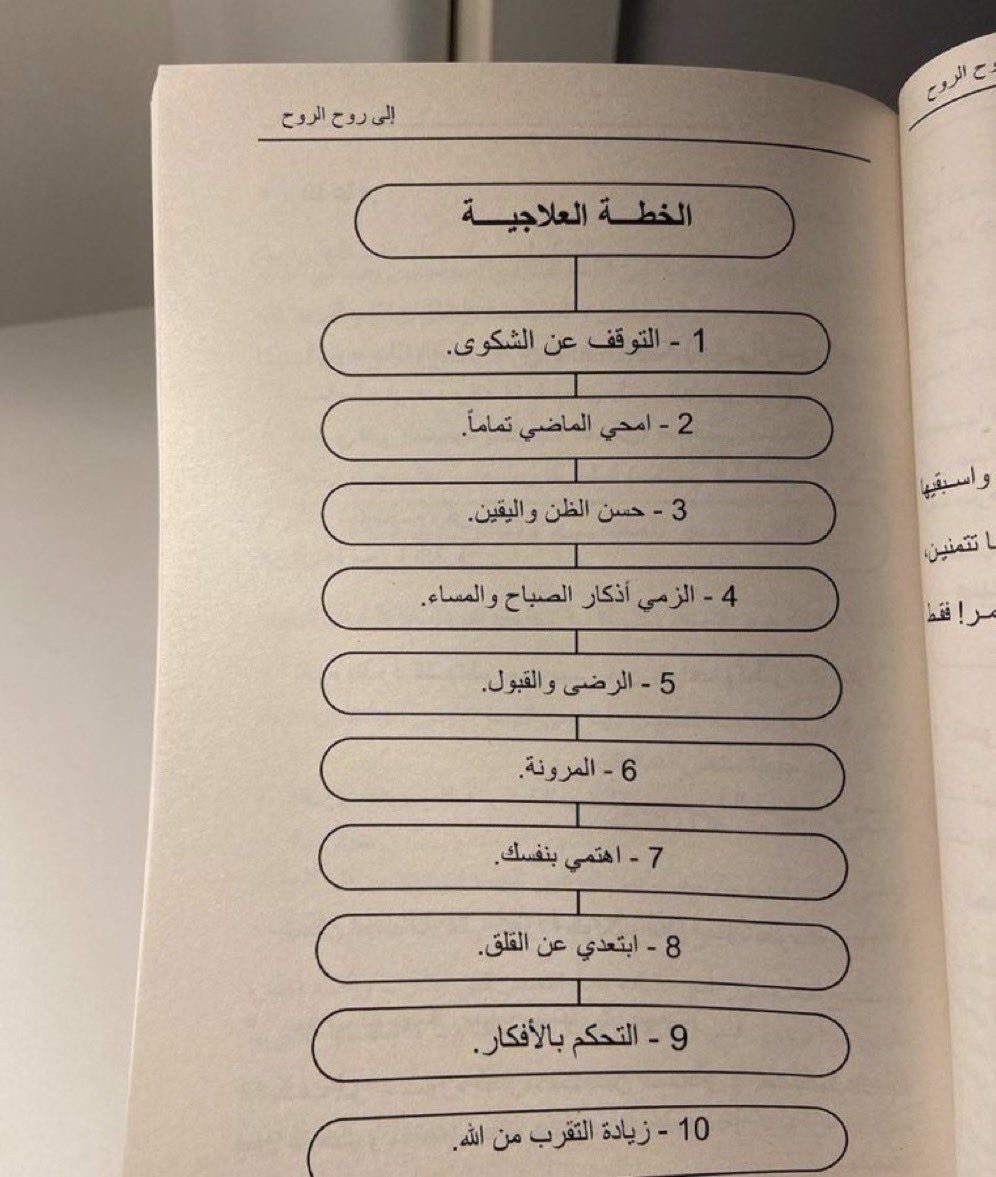 إلى روح الروح
الخطة العلاجية
1 - التوقف عن الشكوى.
2 - امحي الماضي تماماً.
3 - حسن الظن واليقين.
4 - الزمي أذكار الصباح والمساء.
5 - الرضى والقبول.
6 - المرونة.
7 - اهتمي بنفسك.
8 - ابتعدي عن القلق.
9 - التحكم بالأفكار.
10 - زيادة التقرب من الله.
الروح
واسبقيها
تتمنين،
فقط